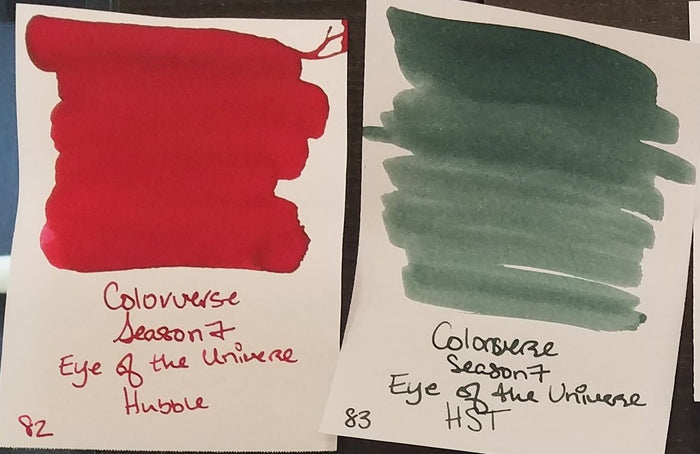 Colorverse
Season 7
Eye of the Universe
Hubble
82
Colorverse
Season 7
Eye of the Universe
HST
83